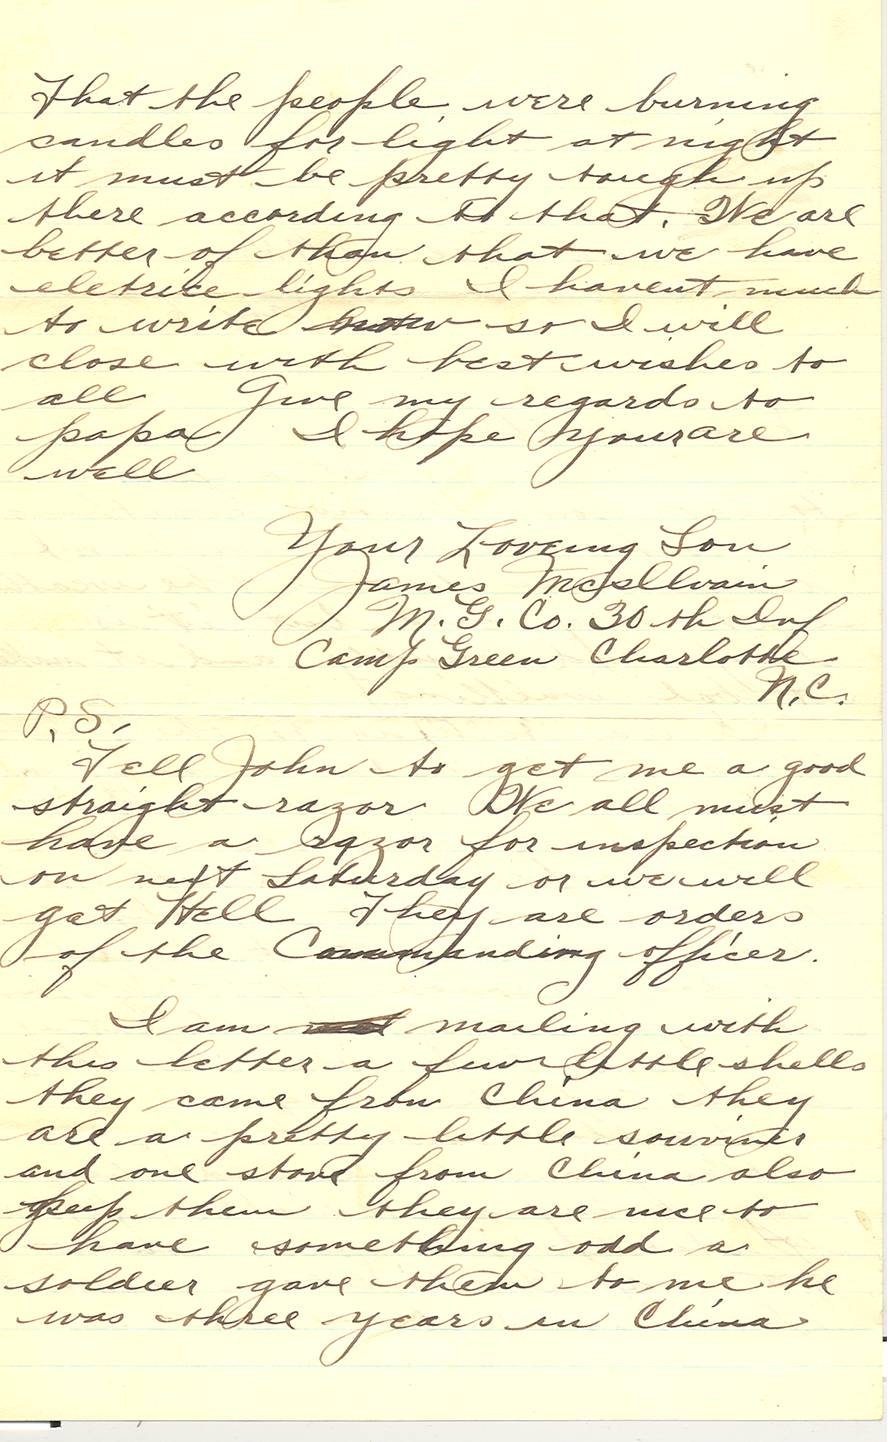 That the people were burning
candles for light at night
it must be pretty tough up
there according to that. We are
better of than that we have
eletrice lights I havent much
to write now so I will
close with best wishes to
all Give my regards to
papa I hope your are
well
Your Loveing Son
James McIllvain
M. G. Co. 30th Inf
Camp Green Charlotte
N.C.
P.S.
Tell John to get me a good
straight razor We all must
have a razor for inspection
on next Saturday or we will
get Hell They are orders
of the Commanding officer.
I am mailing with
this letter a few little shells
they came from China they
are a pretty little souviner
and one stone from China also
keep them they are nice to
have something odd a
soldier gave them to me he
was three years in China